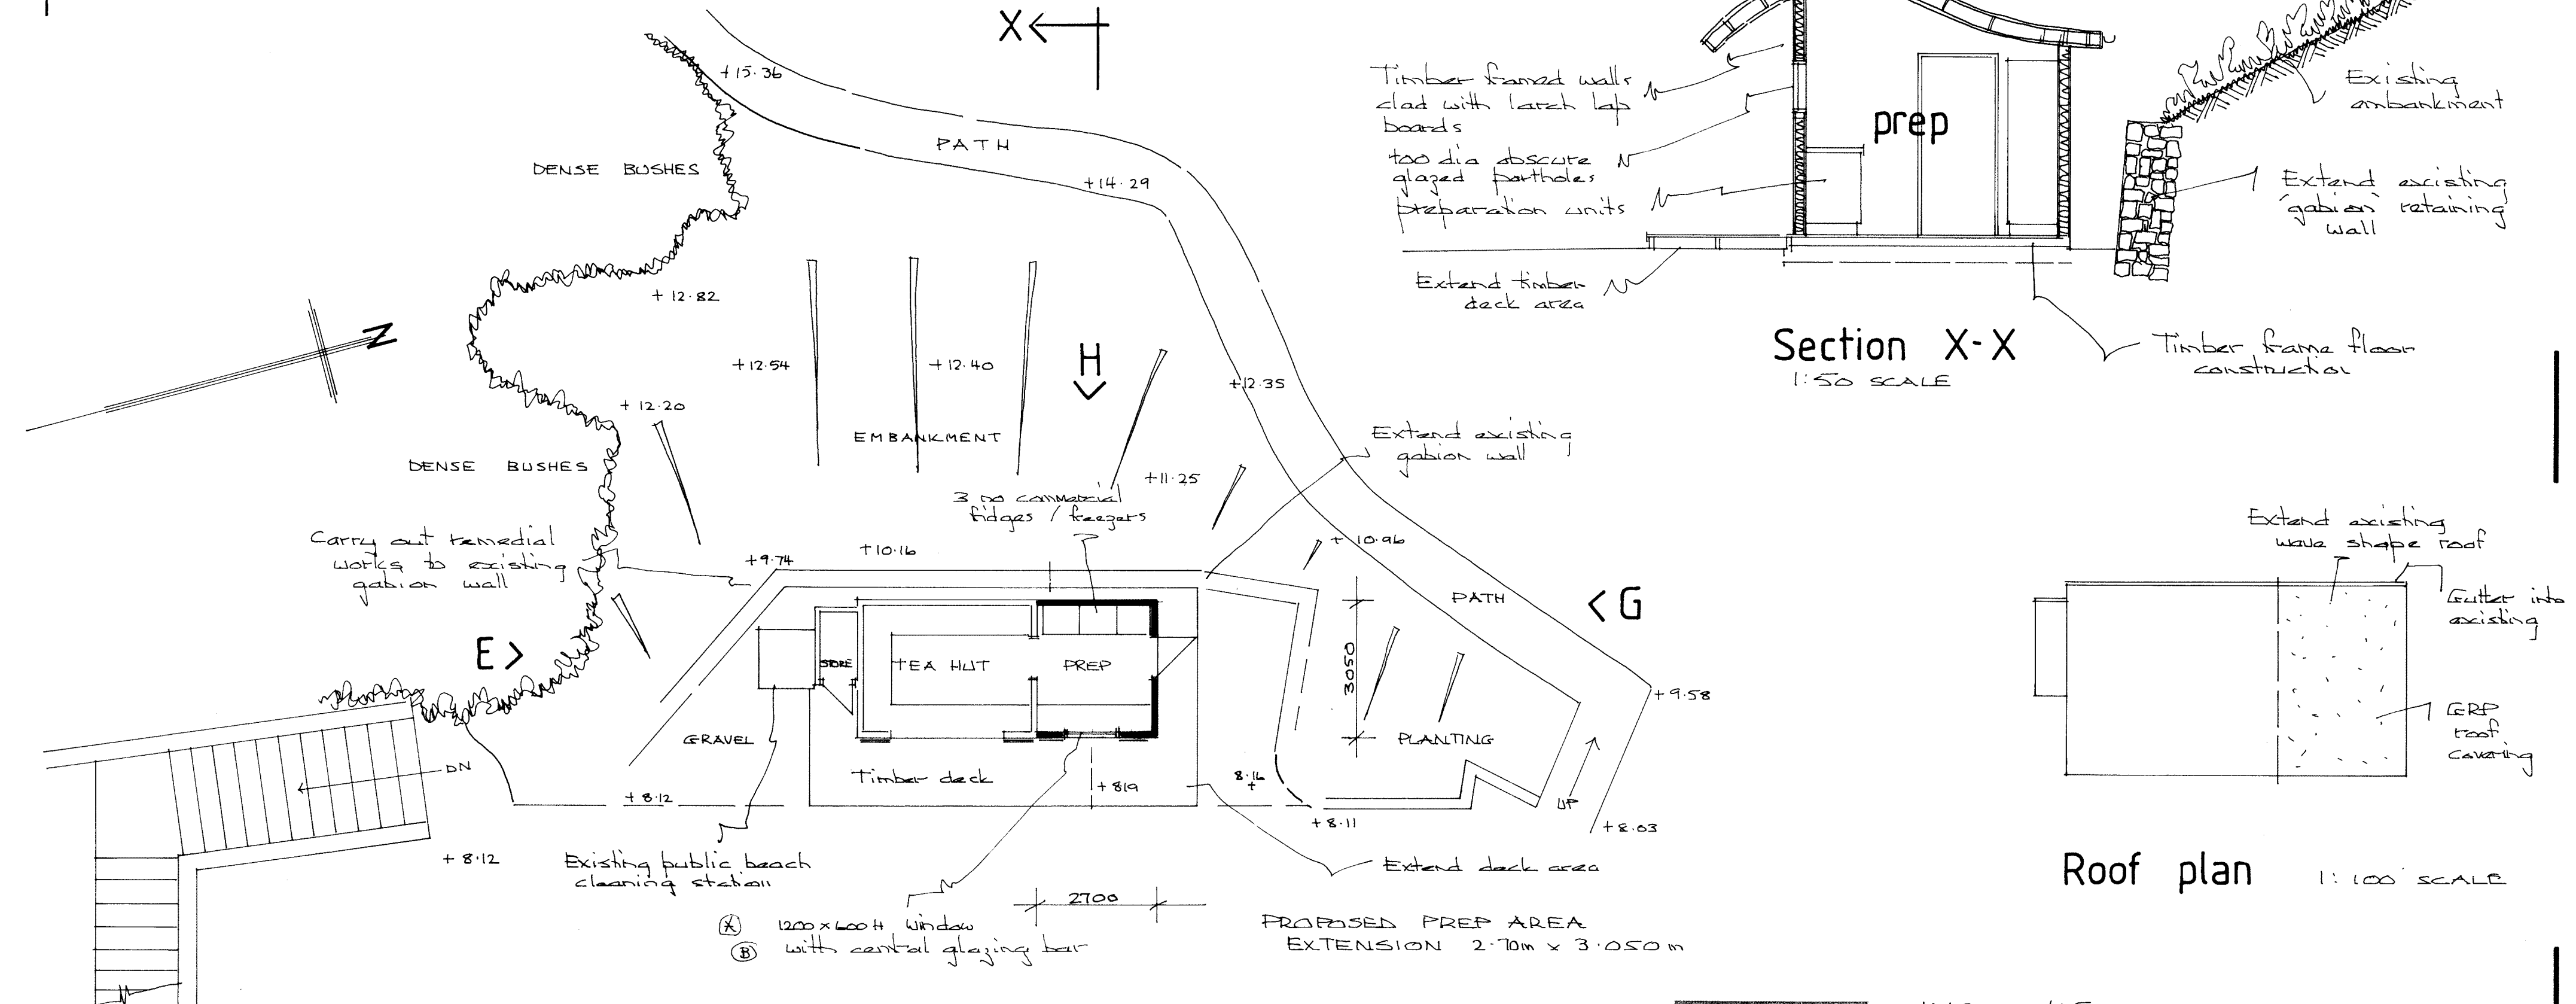 X
+15.36
PATH
DENSE BUSHES
+14.29
+12.82
N
+12.54
+12.40
H
+12.35
+12.20
EMBANKMENT
DENSE BUSHES
Extend existing
gabion wall
+11.25
3 no commercial
fridges / freezers
Carry out remedial
works to existing
gabion wall
+9.74
+10.16
+10.96
PATH
G
E
STORE
TEA HUT
PREP
3050
+9.58
GRAVEL
PLANTING
DN
Timber deck
+819
8.16
+
+8.12
UP
+8.11
+8.03
+8.12
Existing public beach
cleaning station
Extend deck area
2700
A
B
1200x600H window
with central glazing bar
PROPOSED PREP AREA
EXTENSION 2.70m x 3.050m
Timber framed walls
clad with larch lap
boards
dia obscure
glazed portholes
preparation units
Extend timber
deck area
prep
Existing
embankment
Extend existing
'gabion' retaining
wall
Section X-X
1:50 SCALE
Timber frame floor
construction
Extend existing
wave shape roof
Gutter into
existing
GRP
roof
covering
Roof plan
1:100 SCALE